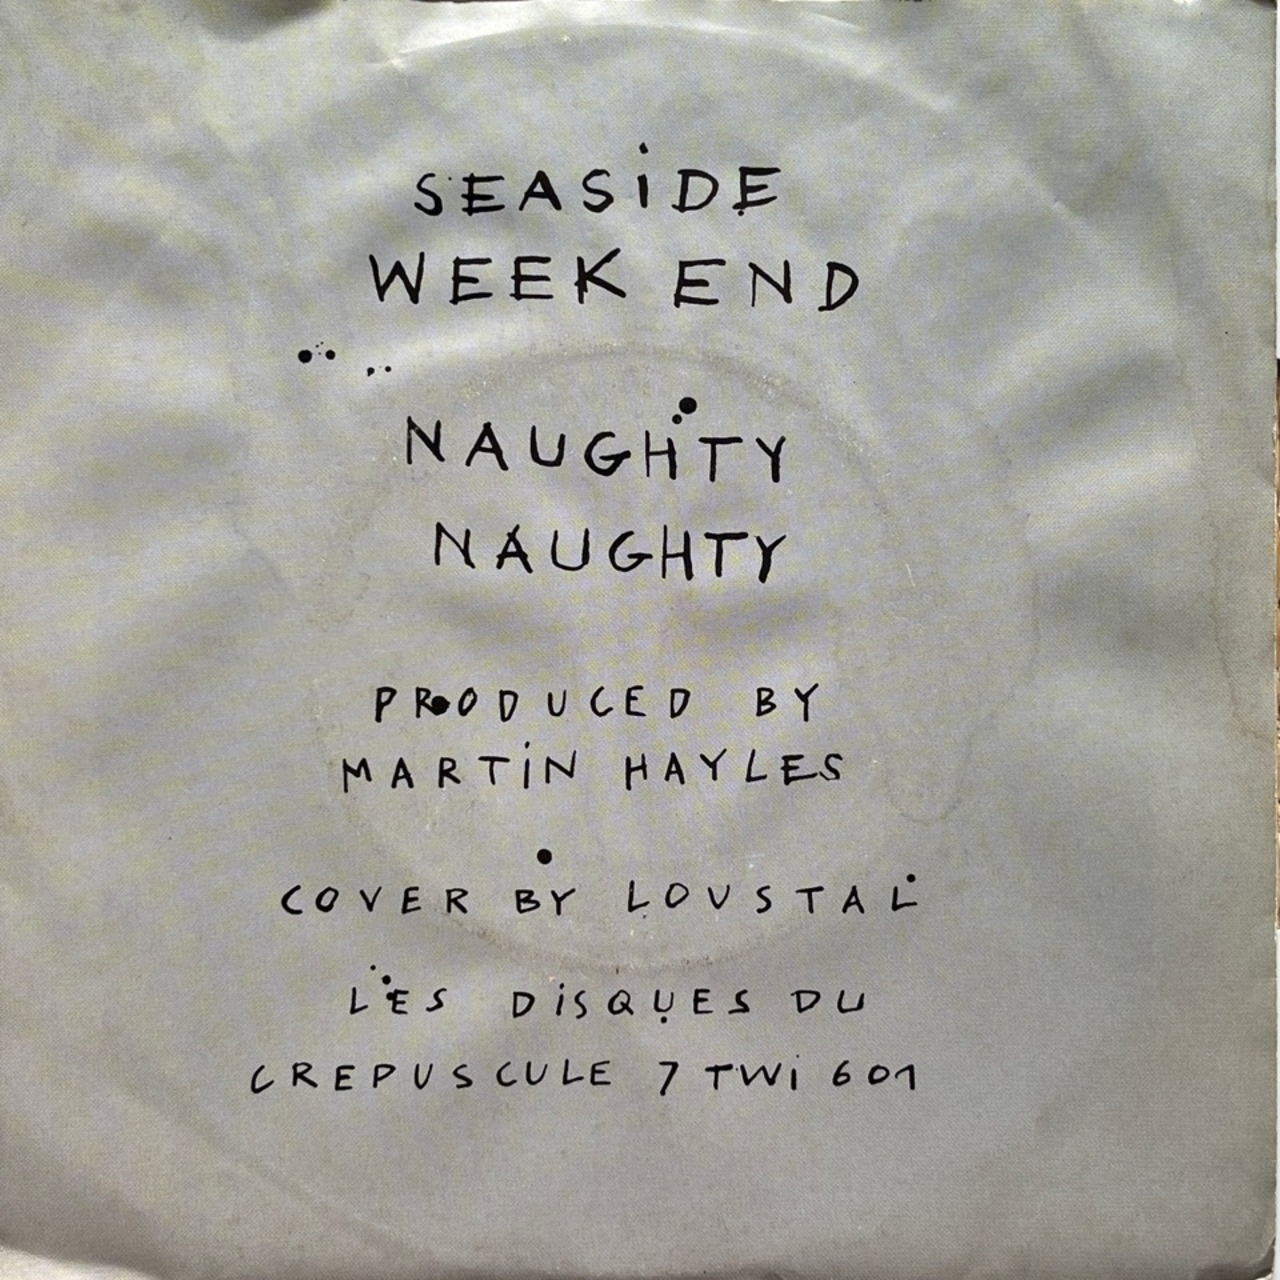 SEASiDE
WEEK END
NAUGHTY
NAUGHTY
PRODUCED BY
MARTiN HAYLES
COVER BY LOUSTAL
LES DiSQUES DU
CREPUSCULE 7 TWi 601